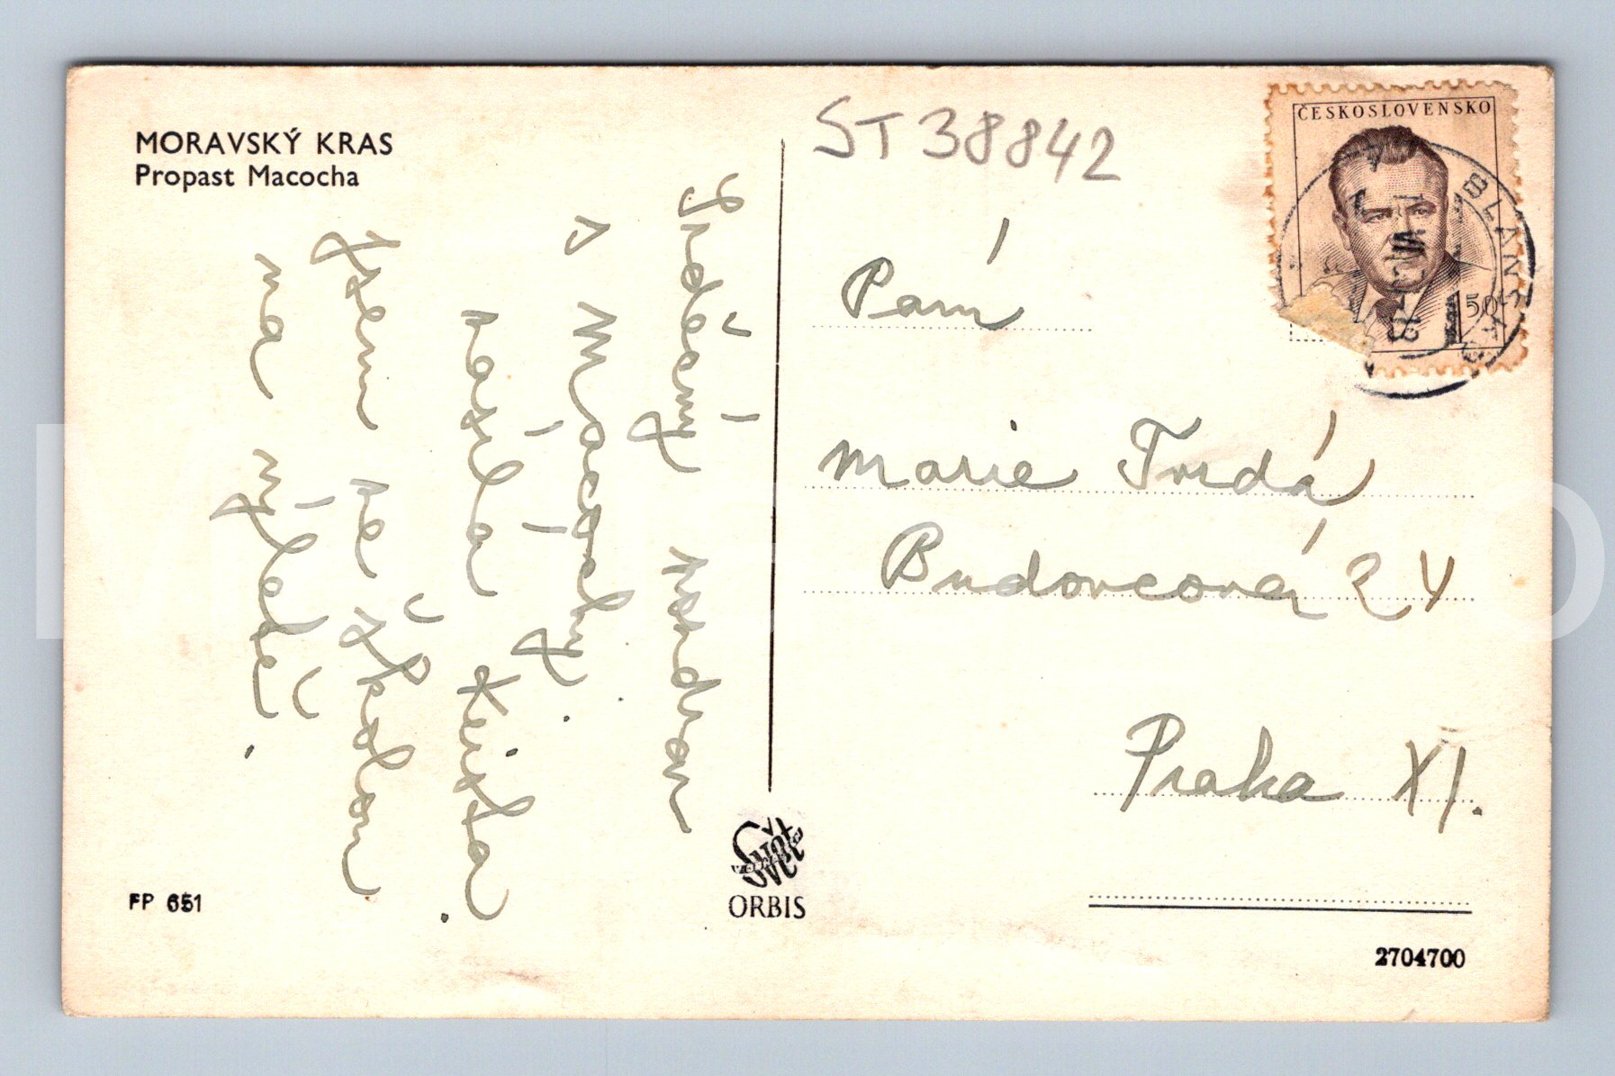 MORAVSKÝ KRAS
Propast Macocha
ST 38842
ČESKOSLOVENSKO
1 50
BLANSKO
Srdečný pozdrav
z Macochy.
posílá Jitka.
Jsem se školou
na výletě.
Paní
Marie Tvrdá
Budovcova 24
Praha XI.
Svět
ORBIS
FP 651
2704700